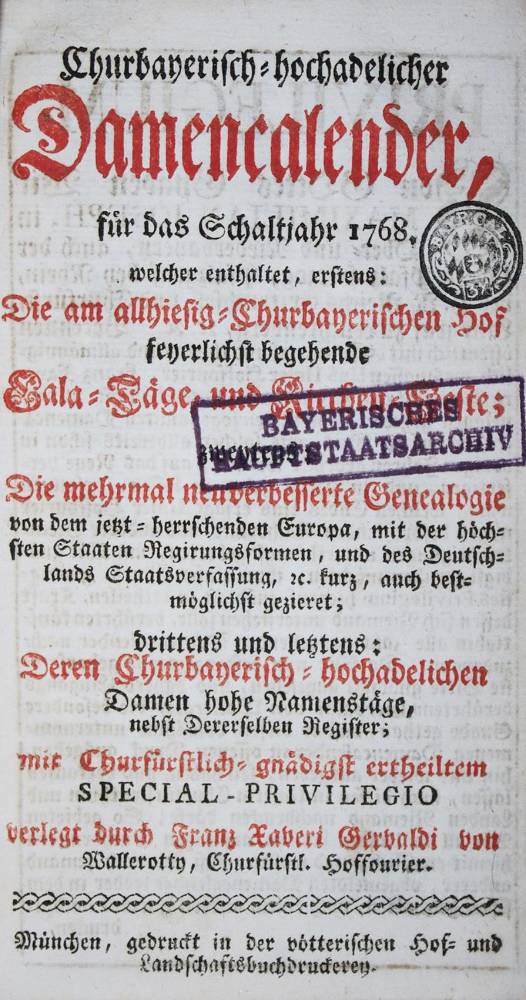 Churbayerisch-hochadelicher
Damencalender,
für das Schaltjahr 1768.
welcher enthaltet, erstens:
Die am allhiesig-Churbayerischen Hof
feyerlichst begehende
Gala-Täge, und Kirchen-Feste;
BAYERISCHES
HAUPTSTAATSARCHIV
zweytens
Die mehrmal neuverbesserte Genealogie
von dem jetzt-herrschenden Europa, mit der höch-
sten Staaten Regirungsformen, und des Deutsch-
lands Staatsverfassung, ꝛc. kurz, auch best-
möglichst gezieret;
drittens und letztens:
Deren Churbayerisch-hochadelichen
Damen hohe Namenstäge,
nebst Dererselben Register;
mit Churfürstlich-gnädigst ertheiltem
SPECIAL-PRIVILEGIO
verlegt durch Franz Xaveri Gerbaldi von
Wallerotty, Churfürstl. Hoffourier.
München, gedruckt in der vötterischen Hof- und
Landschaftsbuchdruckerey.